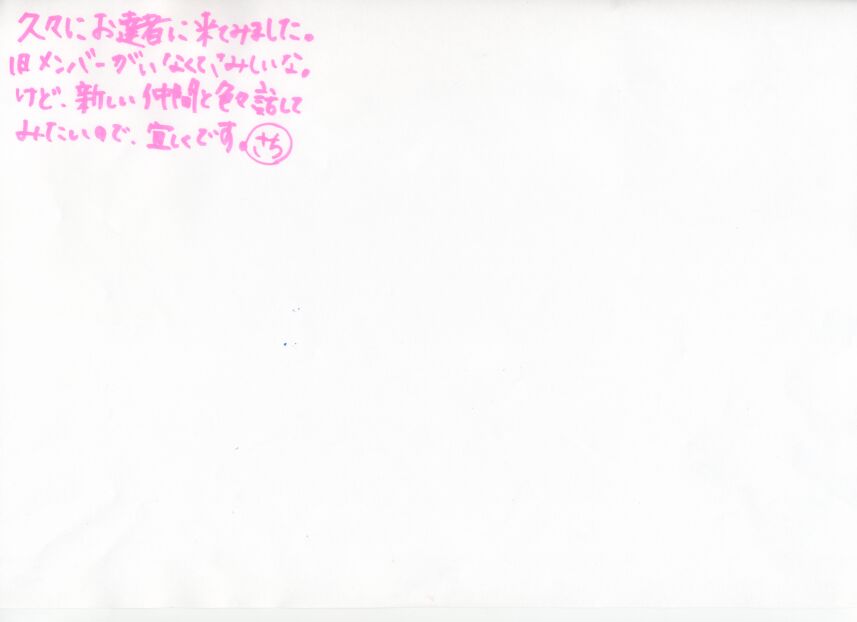 久々にお達者に来てみました。
旧メンバーがいなくてさみしいな。
けど、新しい仲間と色々話して
みたいので、宜しくです。さち